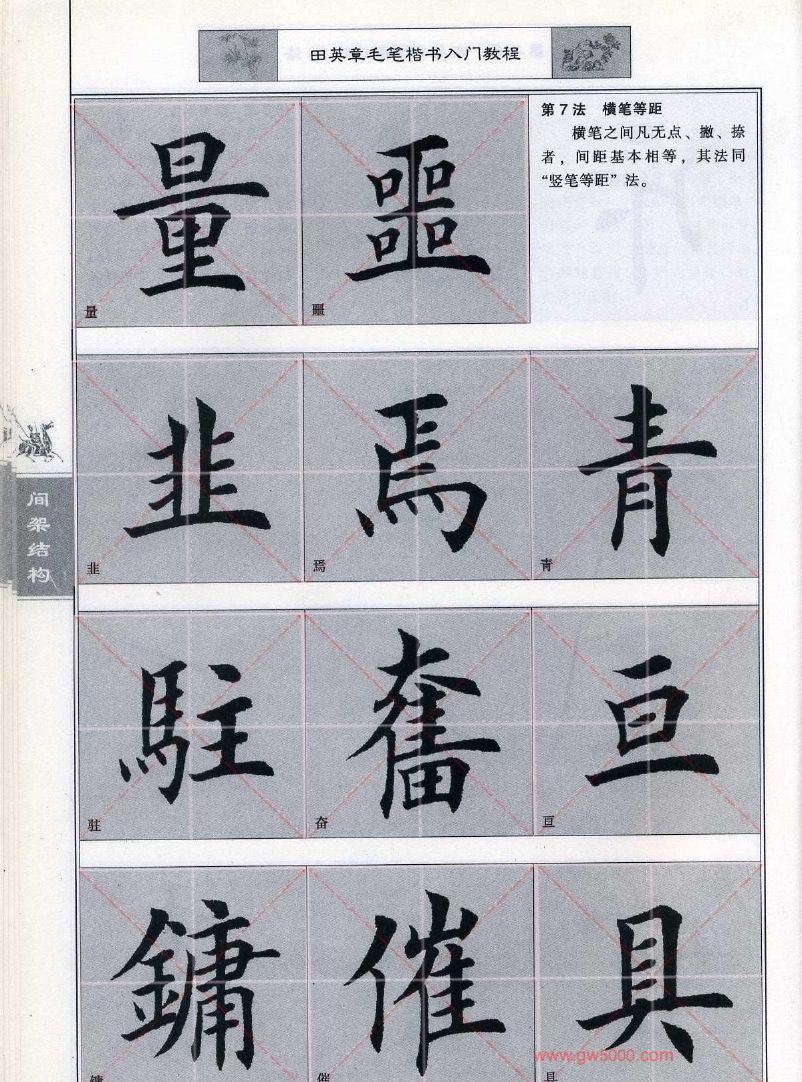 田英章毛笔楷书入门教程
第7法 横笔等距
横笔之间凡无点、撇、捺
者，间距基本相等，其法同
“竖笔等距”法。
量 噩
量 噩
韭 焉 青
韭 焉 青
间架结构
駐 奮 亘
驻 奋 亘
鏞 催 具
镛 催 具
www.gw5000.com